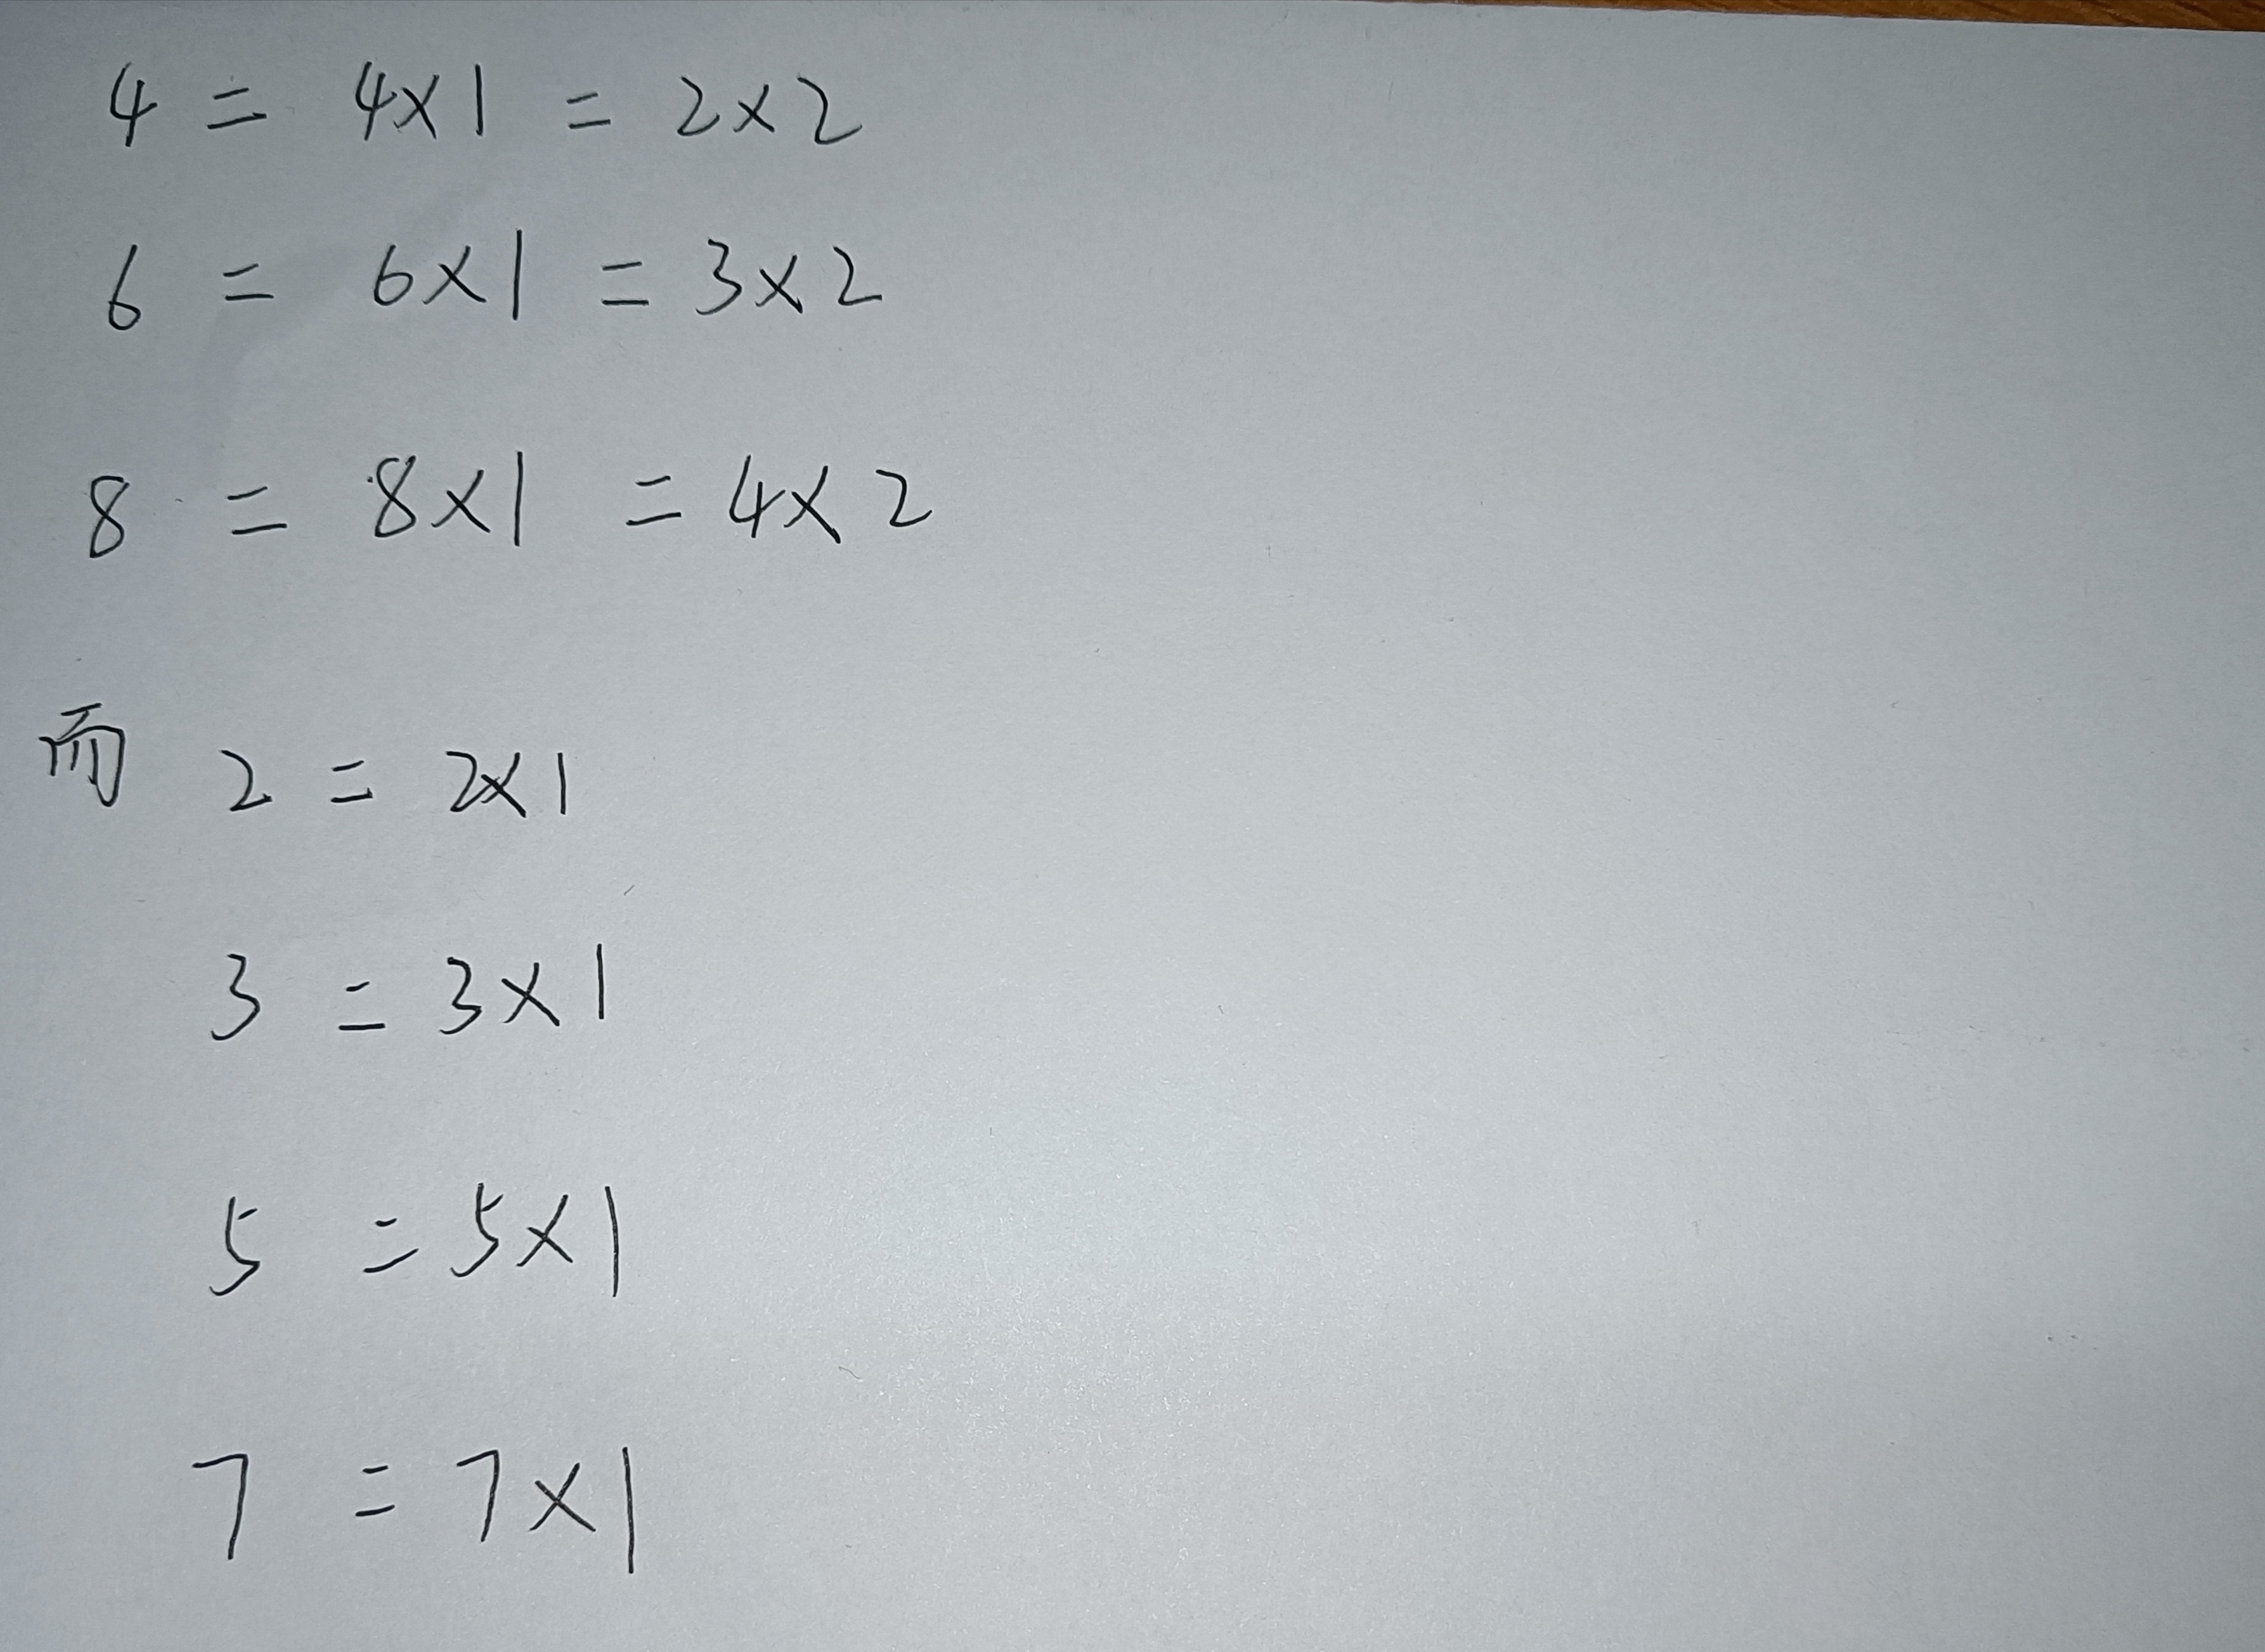 4 = 4×1 = 2×2
6 = 6×1 = 3×2
8 = 8×1 = 4×2
而 2 = 2×1
3 = 3×1
5 = 5×1
7 = 7×1